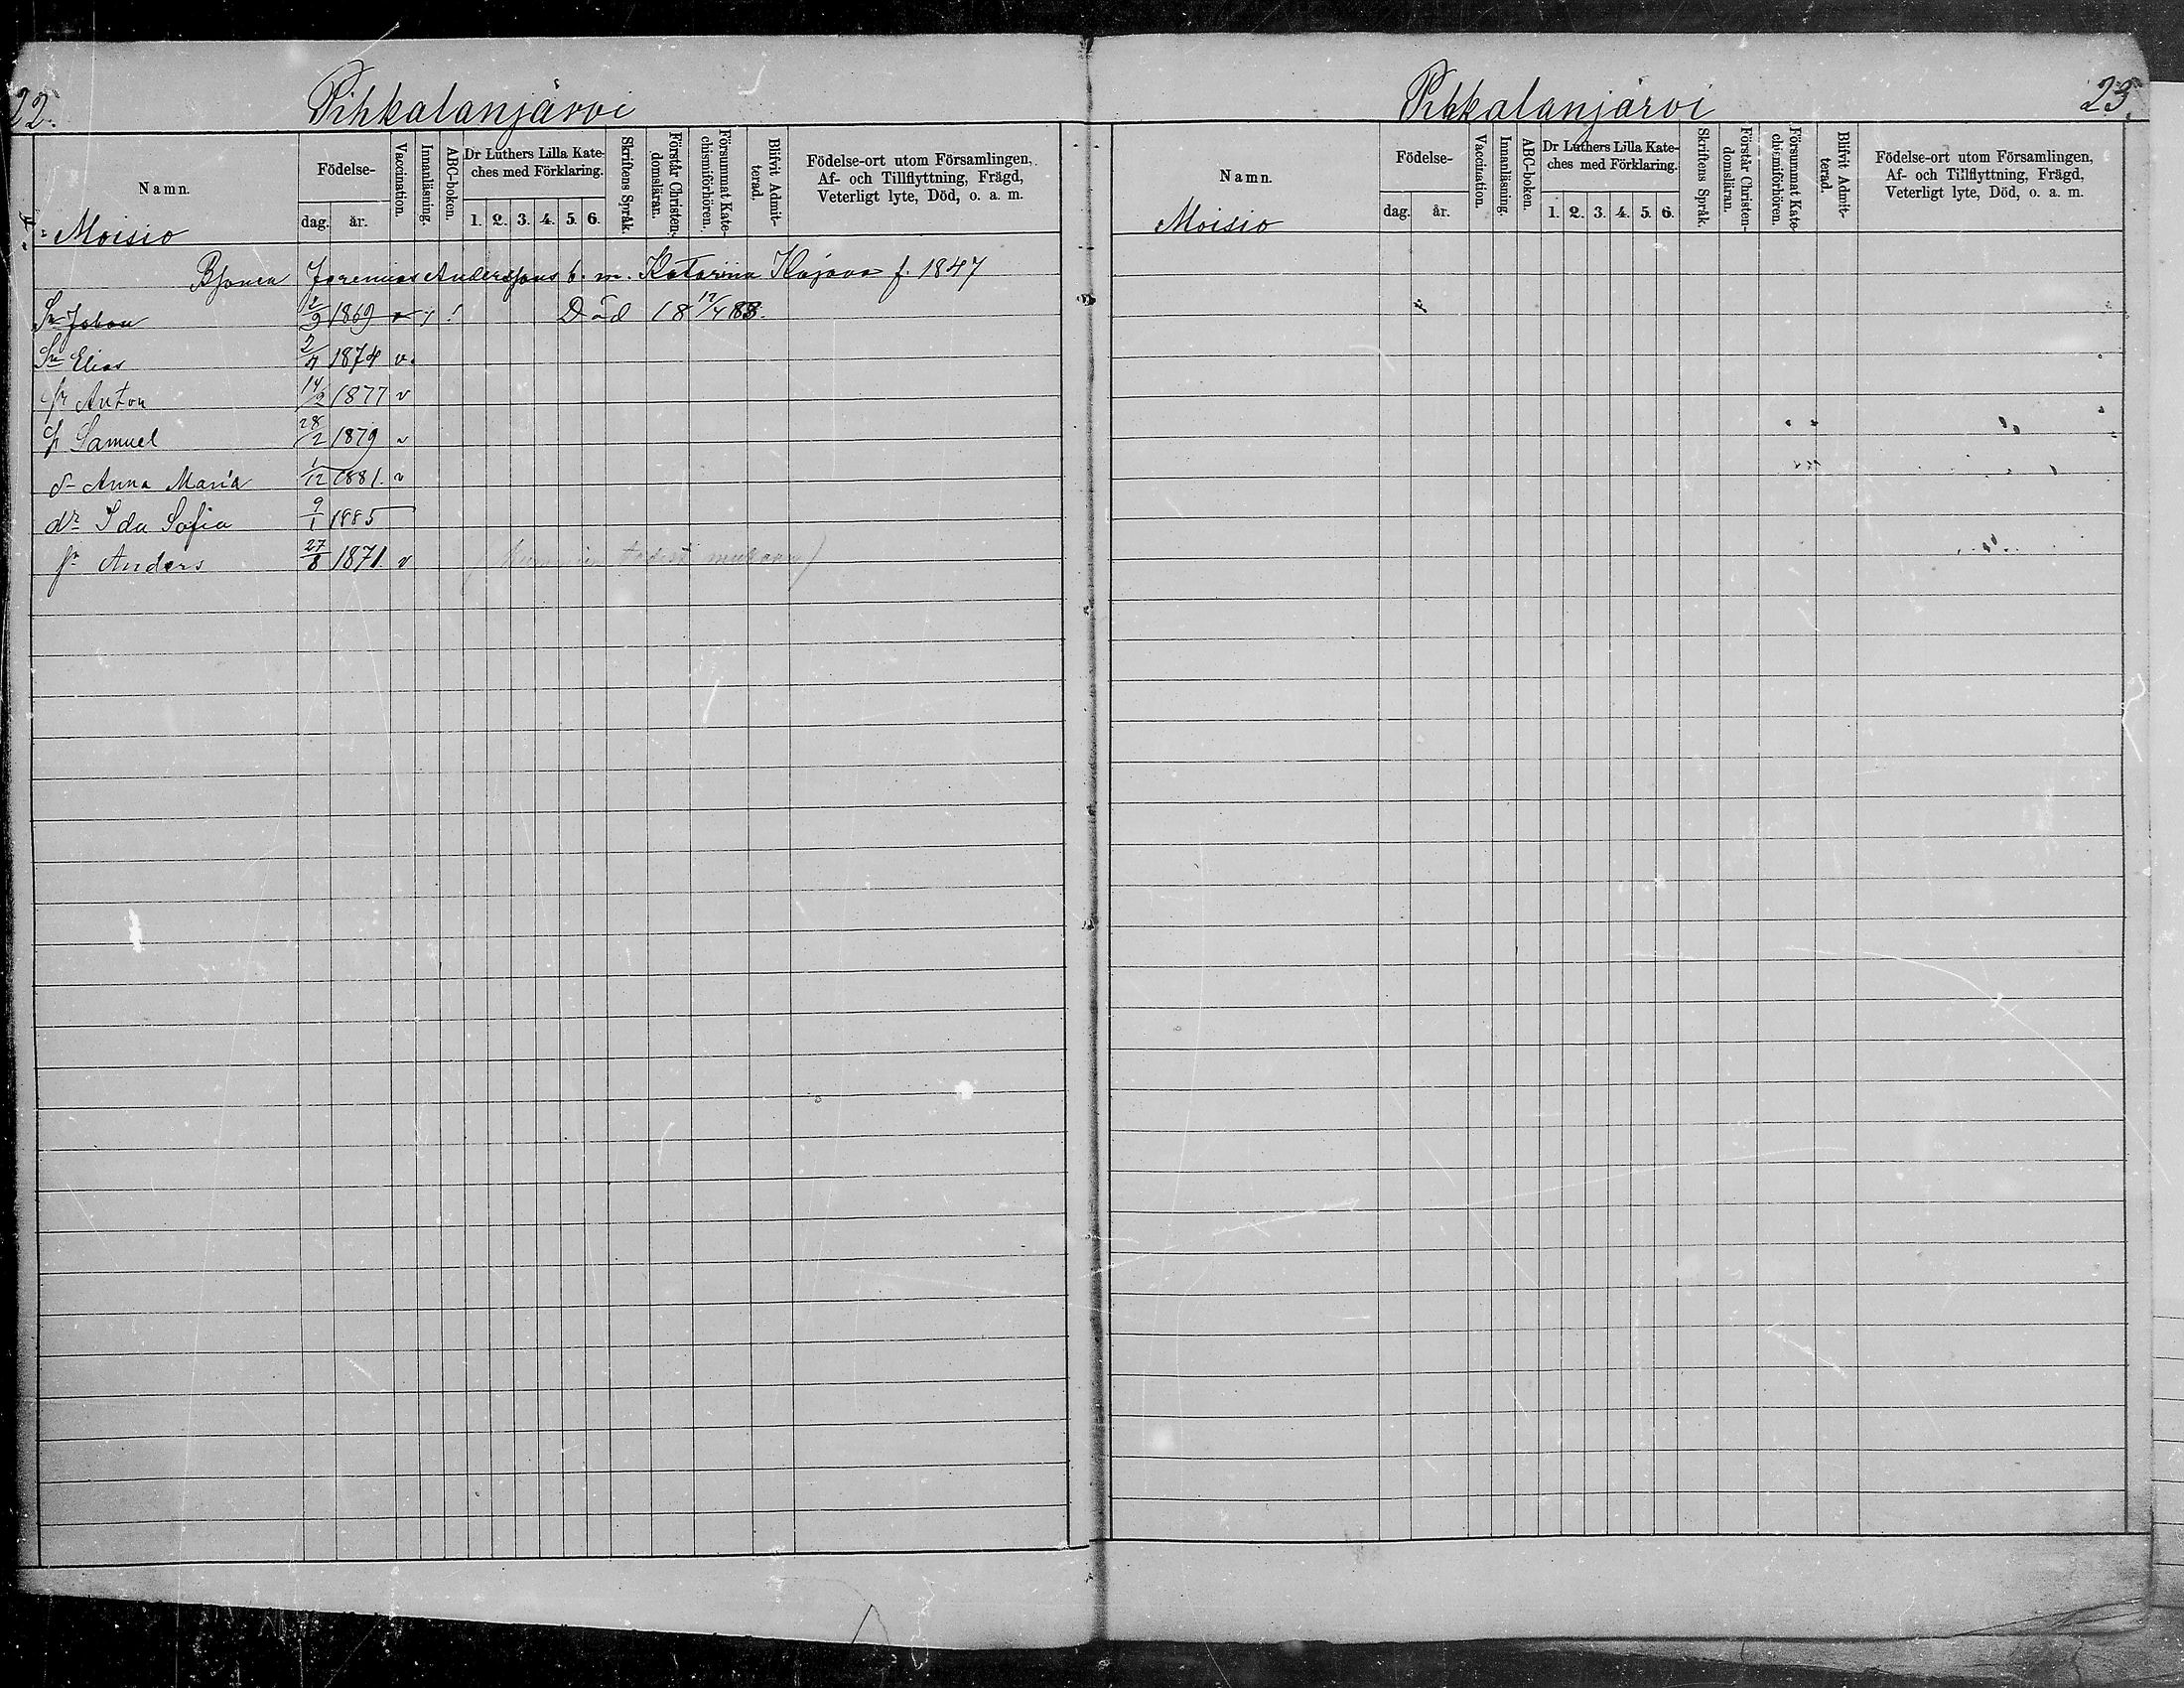 22.
Pihkalanjärvi
Namn.
Födelse-
dag.
år.
Vaccination.
Innanläsning.
ABC-boken.
Dr Luthers Lilla Kate-
ches med Förklaring.
1. 2. 3. 4. 5. 6.
Skriftens Språk.
Förstår Christen-
domsläran.
Försummat Kate-
chismiförhören.
Blifvit Admit-
terad.
Födelse-ort utom Församlingen,
Af- och Tillflyttning, Frägd,
Veterligt lyte, Död, o. a. m.
Moisio
Jeremias Anderssons b. m. Katarina Kajava f. 1847
Sn Johan 2/9 1869 v Död 18 17/4 88.
Sn Elias 1874 v.
sn Anton 14/2 1877 v
sn Samuel 28/2 1879 v
dr Anna Maria 1/12 1881. v
dr Ida Sofia 9/1 1885
sn Anders 27/8 1871. v
Pihkalanjärvi
23.
Namn.
Födelse-
dag.
år.
Vaccination.
Innanläsning.
ABC-boken.
Dr Luthers Lilla Kate-
ches med Förklaring.
1. 2. 3. 4. 5. 6.
Skriftens Språk.
Förstår Christen-
domsläran.
Försummat Kate-
chismiförhören.
Blifvit Admit-
terad.
Födelse-ort utom Församlingen,
Af- och Tillflyttning, Frägd,
Veterligt lyte, Död, o. a. m.
Moisio